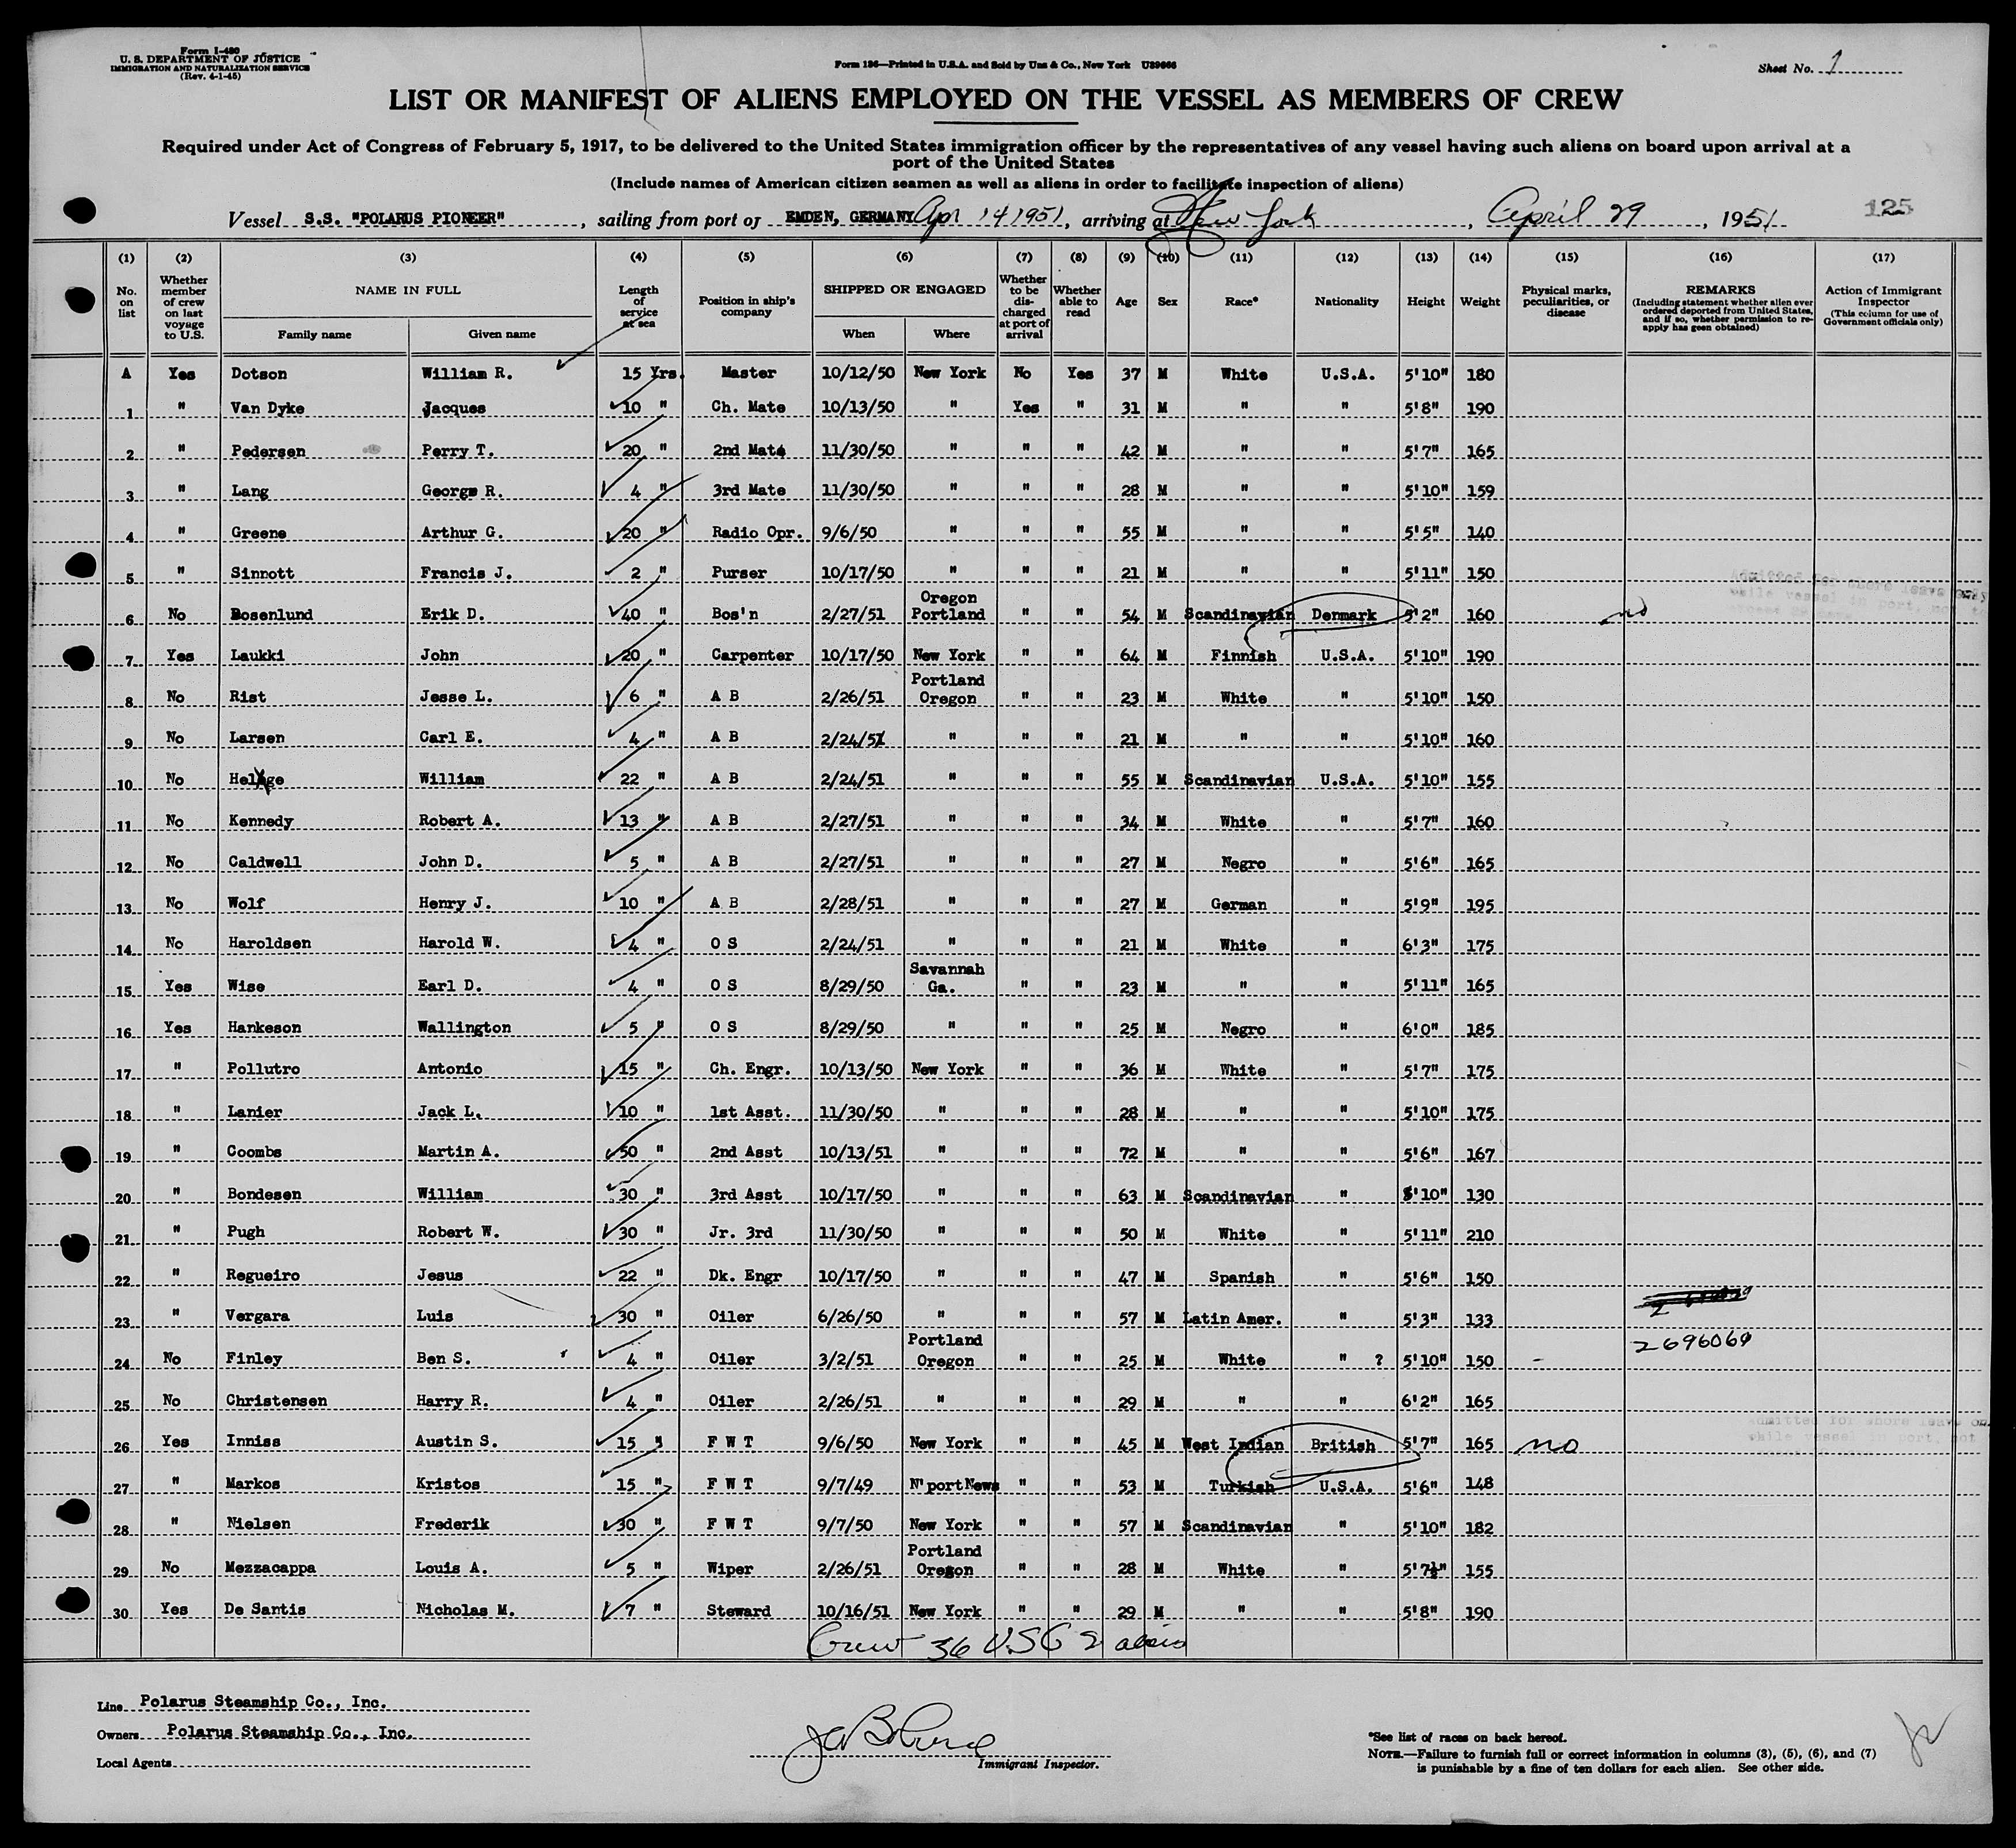 Form I-480
U. S. DEPARTMENT OF JUSTICE
IMMIGRATION AND NATURALIZATION SERVICE
(Rev. 4-1-45)
Form 136—Printed in U.S.A. and Sold by Unz & Co., New York U39666
Sheet No. 1
LIST OR MANIFEST OF ALIENS EMPLOYED ON THE VESSEL AS MEMBERS OF CREW
Required under Act of Congress of February 5, 1917, to be delivered to the United States immigration officer by the representatives of any vessel having such aliens on board upon arrival at a
port of the United States
(Include names of American citizen seamen as well as aliens in order to facilitate inspection of aliens)
Vessel S.S. "POLARUS PIONEER", sailing from port of EMDEN, GERMANY Apr 14 1951, arriving at New York, April 29, 1951
125
(1) (2) (3) (4) (5) (6) (7) (8) (9) (10) (11) (12) (13) (14) (15) (16) (17)
No. on list Whether member of crew on last voyage to U.S. NAME IN FULL Family name Given name Length of service at sea Position in ship's company SHIPPED OR ENGAGED When Where Whether to be discharged at port of arrival Whether able to read Age Sex Race* Nationality Height Weight Physical marks, peculiarities, or disease REMARKS (Including statement whether alien ever ordered deported from United States, and if so, whether permission to reapply has geen obtained) Action of Immigrant Inspector (This column for use of Government officials only)
A Yes Dotson William R. 15 Yrs. Master 10/12/50 New York No Yes 37 M White U.S.A. 5'10" 180
1 " Van Dyke Jacques 10 " Ch. Mate 10/13/50 " Yes " 31 M " " 5'8" 190
2 " Pedersen Perry T. 20 " 2nd Mate 11/30/50 " " " 42 M " " 5'7" 165
3 " Lang George R. 4 " 3rd Mate 11/30/50 " " " 28 M " " 5'10" 159
4 " Greene Arthur G. 20 " Radio Opr. 9/6/50 " " " 55 M " " 5'5" 140
5 " Sinnott Francis J. 2 " Purser 10/17/50 " " " 21 M " " 5'11" 150
6 No Rosenlund Erik D. 40 " Bos'n 2/27/51 Oregon Portland " " 54 M Scandinavian Denmark 5'2" 160 no
7 Yes Laukki John 20 " Carpenter 10/17/50 New York " " 64 M Finnish U.S.A. 5'10" 190
8 No Rist Jesse L. 6 " A B 2/26/51 Portland Oregon " " 23 M White " 5'10" 150
9 No Larsen Carl E. 4 " A B 2/24/51 " " " 21 M " " 5'10" 160
10 No Helge William 22 " A B 2/24/51 " " " 55 M Scandinavian U.S.A. 5'10" 155
11 No Kennedy Robert A. 13 " A B 2/27/51 " " " 34 M White " 5'7" 160
12 No Caldwell John D. 5 " A B 2/27/51 " " " 27 M Negro " 5'6" 165
13 No Wolf Henry J. 10 " A B 2/28/51 " " " 27 M German " 5'9" 195
14 No Haroldsen Harold W. 4 " O S 2/24/51 " " " 21 M White " 6'3" 175
15 Yes Wise Earl D. 4 " O S 8/29/50 Savannah Ga. " " 23 M " " 5'11" 165
16 Yes Hankeson Wallington 5 " O S 8/29/50 " " " 25 M Negro " 6'0" 185
17 " Pollutro Antonio 15 " Ch. Engr. 10/13/50 New York " " 36 M White " 5'7" 175
18 " Lanier Jack L. 10 " 1st Asst. 11/30/50 " " " 28 M " " 5'10" 175
19 " Coombs Martin A. 50 " 2nd Asst 10/13/51 " " " 72 M " " 5'6" 167
20 " Bondesen William 30 " 3rd Asst 10/17/50 " " " 63 M Scandinavian " 5'10" 130
21 " Pugh Robert W. 30 " Jr. 3rd 11/30/50 " " " 50 M White " 5'11" 210
22 " Regueiro Jesus 22 " Dk. Engr 10/17/50 " " " 47 M Spanish " 5'6" 150
23 " Vergara Luis 30 " Oiler 6/26/50 " " " 57 M Latin Amer. " 5'3" 133
24 No Finley Ben S. 4 " Oiler 3/2/51 Portland Oregon " " 25 M White " ? 5'10" 150 - 2696069
25 No Christensen Harry R. 4 " Oiler 2/26/51 " " " 29 M " " 6'2" 165
26 Yes Inniss Austin S. 15 " F W T 9/6/50 New York " " 45 M West Indian British 5'7" 165 no
27 " Markos Kristos 15 " F W T 9/7/49 N'port News " " 53 M Turkish U.S.A. 5'6" 148
28 " Nielsen Frederik 30 " F W T 9/7/50 New York " " 57 M Scandinavian " 5'10" 182
29 No Mezzacappa Louis A. 5 " Wiper 2/26/51 Portland Oregon " " 28 M White " 5'7½" 155
30 Yes De Santis Nicholas M. 7 " Steward 10/16/51 New York " " 29 M " " 5'8" 190
Crew 36 USC 2 aliens
Line Polarus Steamship Co., Inc.
Owners Polarus Steamship Co., Inc.
Local Agents
Immigrant Inspector.
*See list of races on back hereof.
NOTE.—Failure to furnish full or correct information in columns (3), (5), (6), and (7)
is punishable by a fine of ten dollars for each alien. See other side.